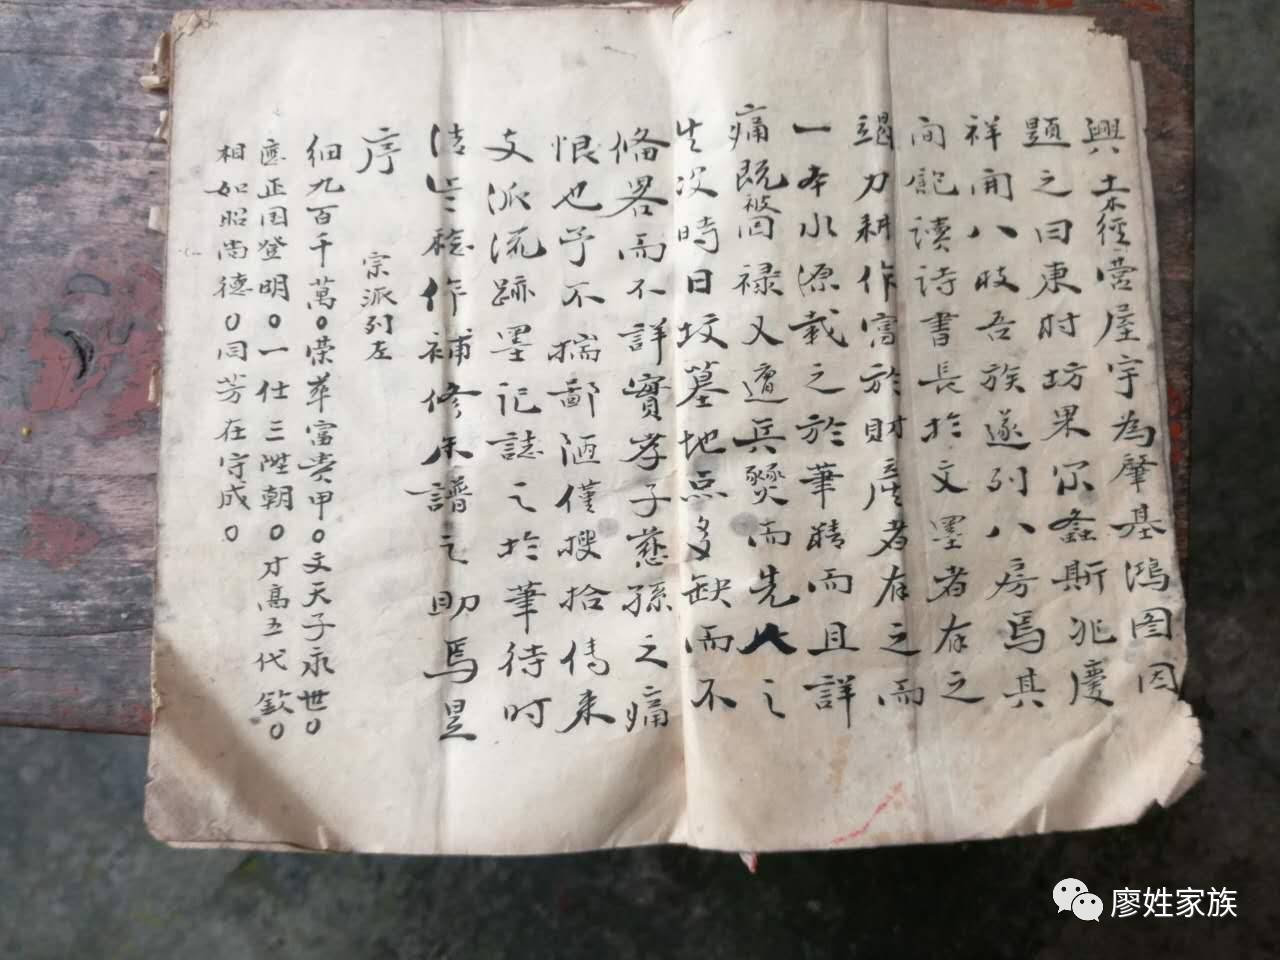 興土木經营屋宇為肇基鴻图因
題之曰東肘坊果尔螽斯兆慶
祥開八肢吾族遂列八房焉其
间飽讀詩書長於文墨者有之
竭力耕作富於財産者有之而
一本水源載之於筆晴而且詳
痛既被回禄又遭兵燹而先人之
生次時日坟墓地点多缺而不
俻畧而不詳實孝子慈孫之痛
恨也予不揣鄙洒僅搜拾傳来
支派流跡墨记誌之於筆待时
作補修譜之助焉昰
序
宗派列左
细九百千萬〇荣華富贵甲〇文天子永世〇
應正国登明〇一仕三陞朝〇才高五代欽〇
相如昭尚德〇同芳在守成〇
廖姓家族